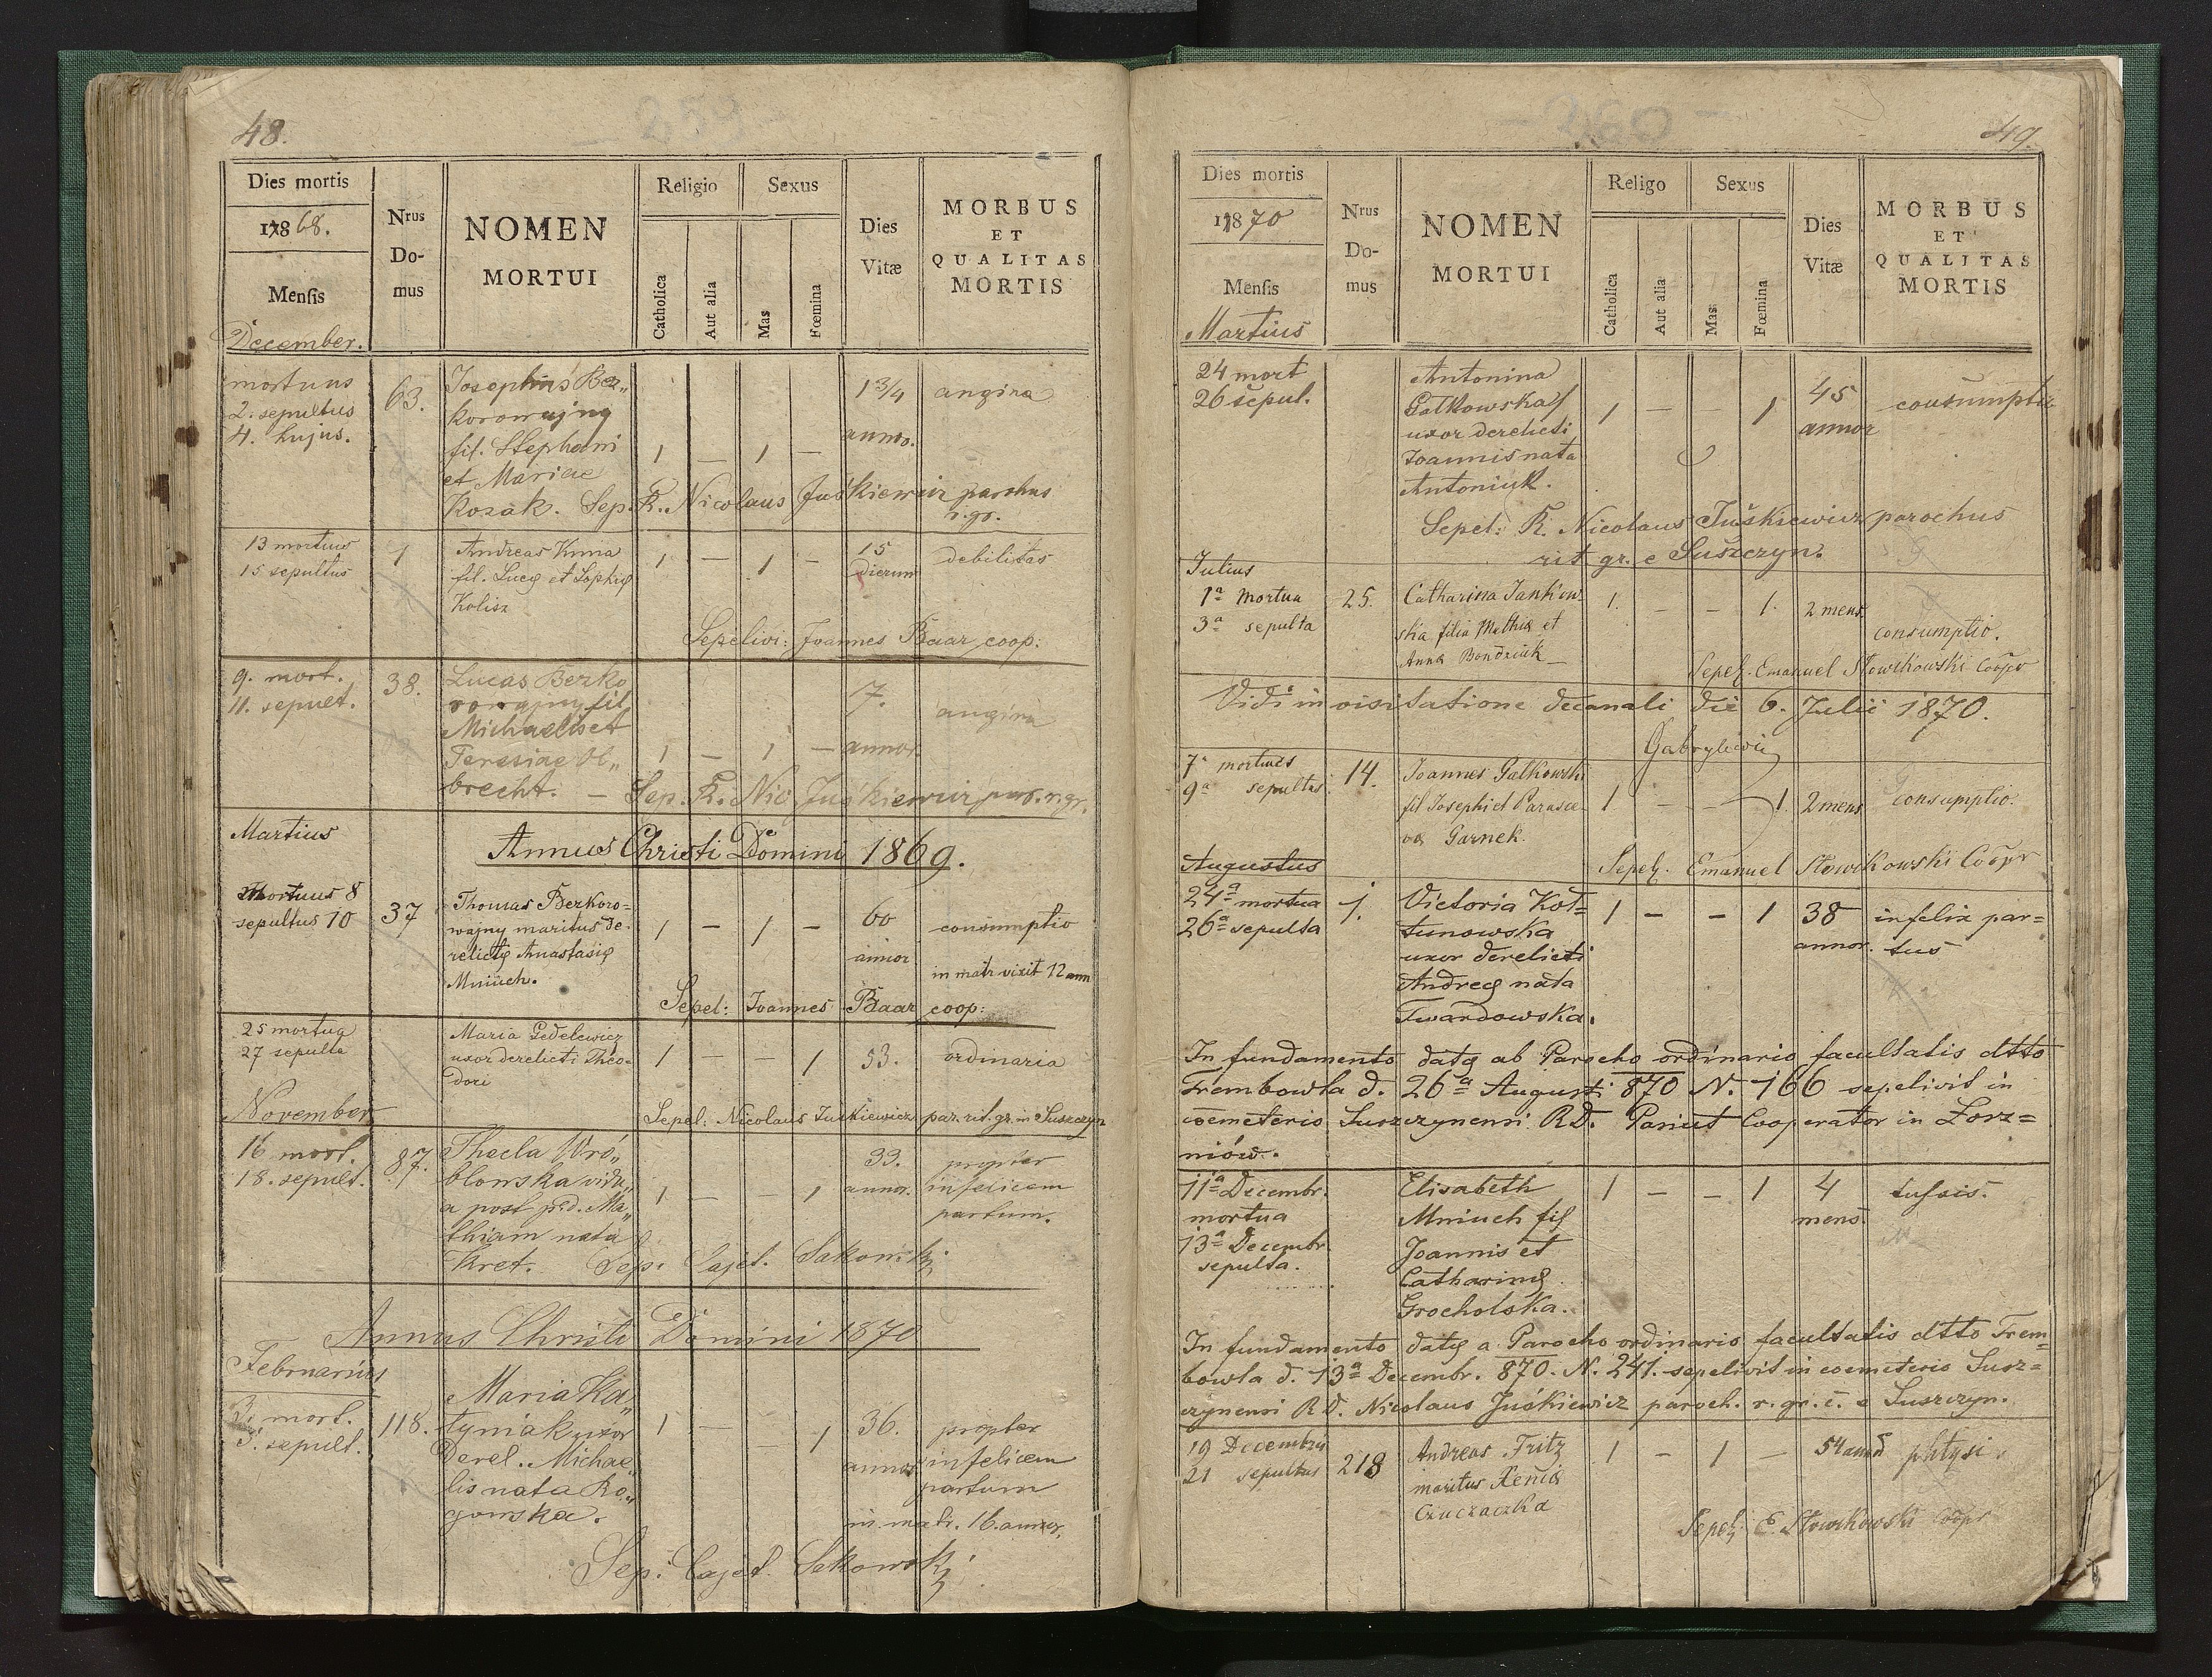 48.
Dies mortis
1868.
Mensis
December.
Nrus
Do-
mus
NOMEN
MORTUI
Religio
Catholica
Aut alia
Sexus
Mas
Fœmina
Dies
Vitæ
MORBUS
ET
QUALITAS
MORTIS
mortuus
2. sepultus
4. hujus.
63.
Josephus Ber„
korowajny
fil. Stephani
et Mariae
Kozak. Sep. R. Nicolaus Juśkiewicz parohus
r. gr.
1 — 1 —
1 3/4
anno.
angina
13 mortuus
15 sepultus
1
Andreas Kima
fil. Lucę et Sophię
Kolisz
1 — 1 —
15
dierum
debilitas
Sepelivi: Joannes Baar coop:
9. mort.
11. sepult.
38.
Lucas Berko
rowajny fil.
Michaelis et
Teresiae Ol„
brecht. — Sep. R. Nic Juśkiewicz par. r. gr.
1 — 1 —
7.
annor.
angina
Martius
Annus Christi Domini 1869.
Mortuus 8
sepultus 10
37
Thomas Berkoro=
wajny maritus de=
relictę Anastasię
Mniuch.
1 — 1 —
60
annor
consumptio
in matr vixit 12 ann
Sepel: Joannes Baar coop:
25 mortua
27 sepulta
Maria Gedelewicz
uxor derelicti Theo-
dori
1 — — 1
53.
ordinaria
November
Sepel: Nicolaus Juśkiewicz par. rit. gr. in Suszczyn
16 mort.
18. sepult.
87.
Thecla Wró„
blonska vidu„
a post p.d. Ma„
thiam nata
Kret. Sep: Cajet. Sakowski
1 — — 1
33.
annor.
propter
infelicem
partum.
Annus Christi Domini 1870
Februarius
3. mort.
5. sepult.
118.
Maria Ka„
tyniak uxor
Derel. Michae„
lis nata Ro„
gowska.
1 — — 1
36.
annor
propter
infelicem
partum
in matr. 16. annor,
Sep: Cajet. Sekowski
49.
Dies mortis
1870
Mensis
Martius
Nrus
Do-
mus
NOMEN
MORTUI
Religo
Catholica
Aut alia
Sexus
Mas
Fœmina
Dies
Vitæ
MORBUS
ET
QUALITAS
MORTIS
24 mort
26 sepul.
Antonina
Gatkowska
uxor derelicti
Joannis nata
Antoniuk.
1 — — 1
45
annor
consumptio
Sepel: R. Nicolaus Juśkiewicz parochus
rit gr. e Suszczyn.
Julius
1ª Mortua
3ª sepulta
25.
Catharina Jankow-
ska filia Mathię et
Anna Bondziuk
1. — — 1.
2 mens.
consumptio.
Sepel. Emanuel Słowikowski Coopr
Vidi in visitatione decanali die 6. Julii 1870.
Gabrylewicz
7ª mortuus
9ª sepultus
14.
Joannes Gatkowski
fil Josephi et Parasce
va Garnek.
1. — — 1.
2 mens
consumptio.
Sepel. Emanuel Słowikowski Coopr
Augustus
24ª mortua
26ª sepulta
1.
Victoria Koł=
tunowska
uxor derelicti
Andreę nata
Twardowska.
1 — — 1
38
annor.
infelix par=
tus
In fundamento datę ab Parocho ordinario facultatis dtto
Trembowla d. 26ª Augusti 870 N. 166 sepelivit in
coemeterio Suszczynensi R.D. Pariut Cooperator in Łosz=
niów.
11ª Decembr.
mortua
13ª Decembr.
sepulta.
Elisabeth
Mniuch fil
Joannis et
Catharinę
Grocholska.
1 — — 1
4
mens.
tussis.
In fundamento datę a Parocho ordinario facultatis dtto Trem=
bowla d. 13ª Decembr. 870. N. 241. sepelivit in coemeterio Susz=
czynensi R.D. Nicolaus Juśkiewicz paroch. r. gr. c. e Suszczyn.
19 Decembris
21 sepultus
218
Andreas Fritz
maritus Xenię
Czuczaczka
1 — 1 —
54 ann
phtysi
Sepel. E. Słowikowski Coopr